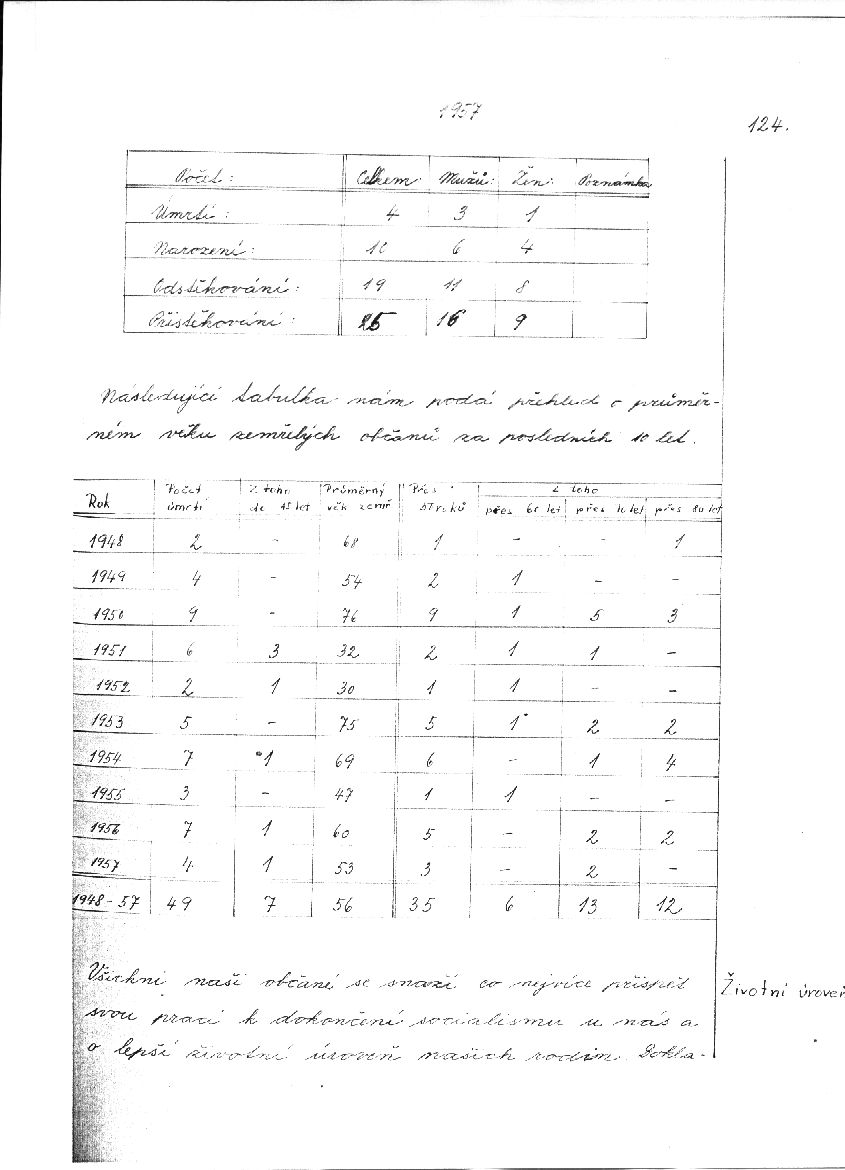 1957
124.
Počet: Celkem: Mužů: Žen: Poznámka
Úmrtí: 4 3 1
Narození: 10 6 4
Odstěhování: 19 11 8
Přistěhování: 25 16 9
Následující tabulka nám podá přehled o průměr-
ném věku zemřelých občanů za posledních 10 let.
Rok Počet úmrtí Z toho do 15 let Průměrný věk zemř Přes roků Z toho
přes 60 let přes 70 let přes 80 let
1948 2 - 68 1 - - 1
1949 4 - 54 2 1 - -
1950 9 - 76 9 1 5 3
1951 6 3 32 2 1 1 -
1952 2 1 30 1 1 - -
1953 5 - 75 5 1 2 2
1954 7 1 69 6 - 1 4
1955 3 - 47 1 1 - -
1956 7 1 60 5 - 2 2
1957 4 1 53 3 - 2 -
1948-57 49 7 56 35 6 13 12
Všichni naši občané se snaží co nejvíce přispět
Životní úroveň
svou prací k dokončení socialismu u nás a
o lepší životní úroveň našich rodin. Dokla-